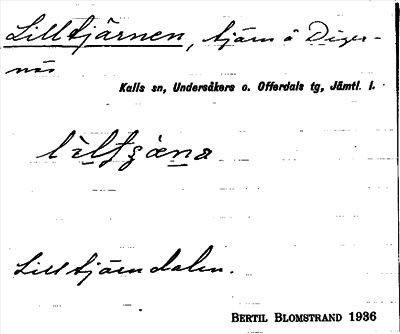 Lilltjärnen, tjärn å Diger-
näs
Kalls sn, Undersåkers o. Offerdals tg, Jämtl. l.
Lilltjärndalen.
BERTIL BLOMSTRAND 1936